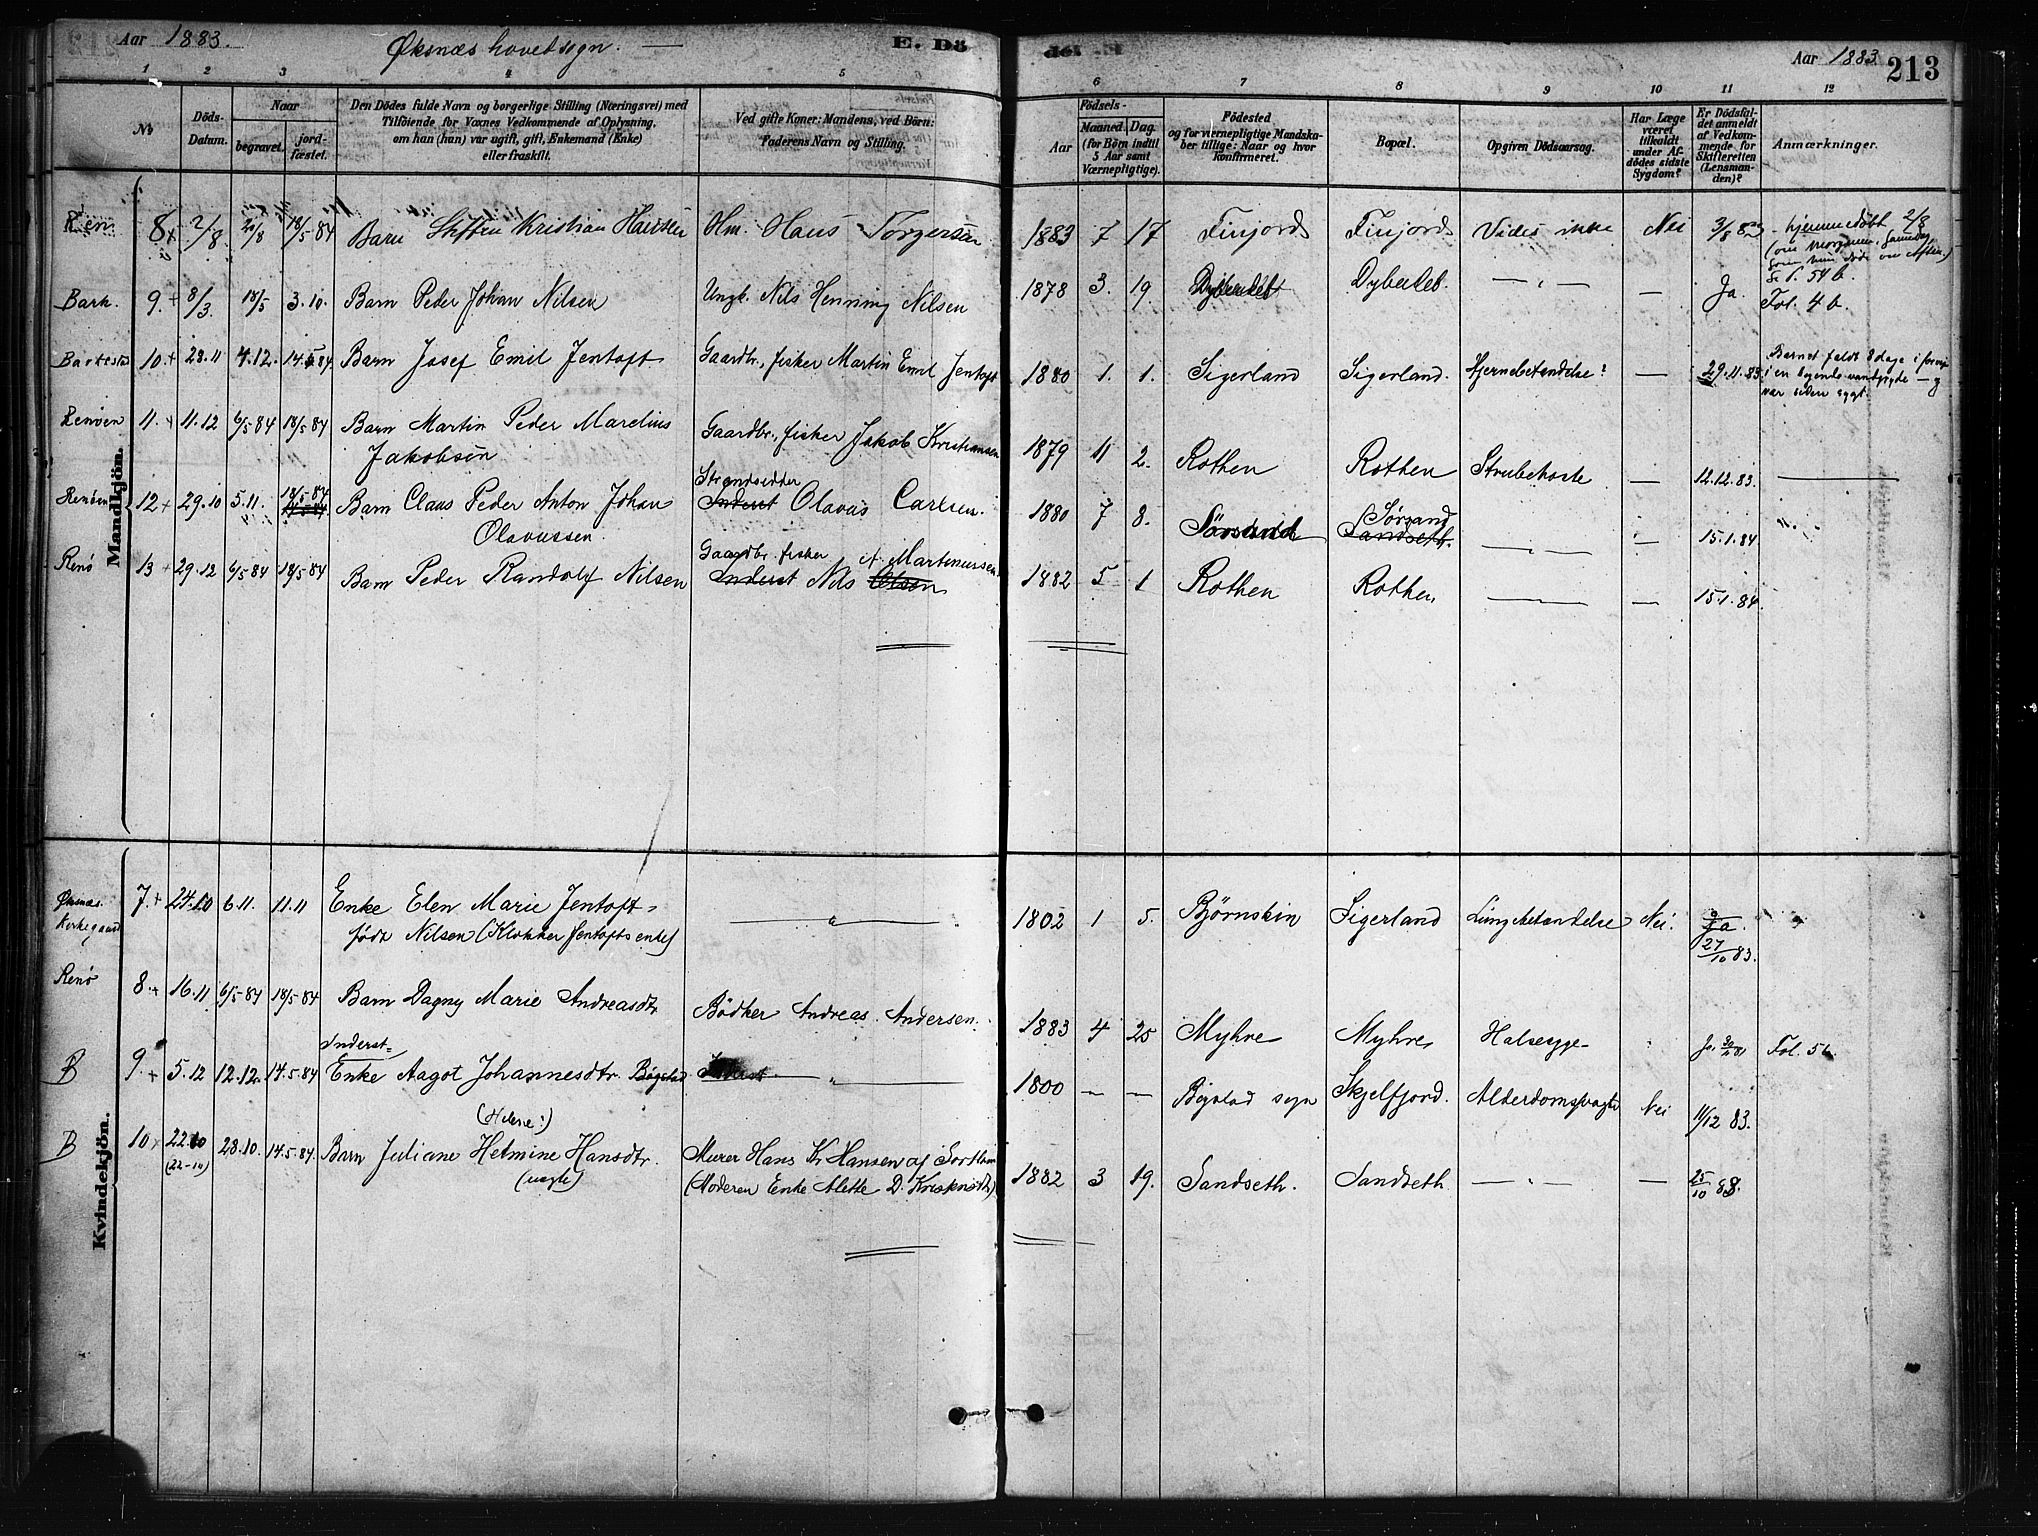 Aar 1883. Øksnæs hovedsogn. — E. Dö
1 2 3 4 5
No Döds-Datum. Naar begravet. jord-fæstet.
Den Dödes fulde Navn og borgerlige Stilling (Næringsvei) med
Tilföiende for Voxnes Vedkommende af Oplysning,
om han (hun) var ugift, gift, Enkemand (Enke)
eller fraskilt.
Ved gifte Koner: Mandens, ved Börn:
Faderens Navn og Stilling.
Mandkjön.
8 + 2/8 20/8 18/5 84 Barn Kristian Hansen Hm. Hans Torgersen
Bark. 9. + 8/3 18/5 3.10. Barn Peder Johan Nilsen Ungk. Nils Henning Nilsen
10 + 28.11 4.12. 14.5 84. Barn Josef Emil Jentoft Gaardbr., fisker Martin Emil Jentoft
Renøen 11. + 11.12 6/5 84 18/5 84 Barn Martin Peder Marelius
Jakobsen Gaardbr., fisker Jakob Kristiansen
Renøen 12 + 29.10 5.11. 18/5 84 Barn Claus Peder Anton Johan
Olavussen. Strandsidder
Inderst Olavus Carlsen.
Renø 13 + 29.12 6/5 84 18/5 84 Barn Peder Randolf Nilsen Gaardbr. fisker
Inderst Nils Olsen A. Martinussen
Kvindekjön.
Øksnæs
Kirkegaard 7. + 24.10 6.11. 11.11 Enke Elen Marie Jentoft,
født Nilsen (Klokker Jentofts enke) — " —
Renø 8. + 16.11 6/5 84 18/5 84 Barn Dagny Marie Andreasdtr Bödker Andreas Andersen.
Inderst=
B 9. + 5.12 12.12. 14.5.84 Enke Aagot Johannesdtr. Bøgstad — " —
B 10 + 22.10 28.10. 14.5.84. Barn Juliane Helmine Hansdtr. Murer Hans Kr Hansen af Sortland
(22-10) (uægte) (Moderen Enke Alette D. Kristensdtr)
det Aar 1883 213
6 7 8 9 10 11 12
Födsels-
Aar Maaned. Dag.
(for Börn indtil
5 Aar samt
Værnepligtige).
Födested
og for værnepligtige Mandska-
ber tillige: Naar og hvor
konfirmeret.
Bopæl.
Opgiven Dödsaarsag.
Har Læge
været
tilkaldt
under Af-
dödes sidste
Sygdom?
Er Dödsfal-
det anmeldt
af Vedkom-
mende for
Skifteretten
(Lensman-
den)?
Anmærkninger.
1883 7 17 Finjord Finjord Vides ikke Nei 3/8 83 hjemmedöbt 2/8
S. 54 b.
1878 3. 19. Dybedet Dybedet. — " — — Ja. Fol. 4 b.
1880 1. 1. Sigerland Sigerland. Hjernebetændelse? — 29.11.83. Barnet faldt 8 dage i forveien
i en vandpytte — og
var siden sygt.
1879 11 2. Rothen Rothen Strubehoste — 12.12.83. —
1880 7 8. Sørsand Sørsand
Sandseth. — " — — 15.1.84.
1882 5 1 Rothen Rothen — " — — 15.1.84.
1802 1 5. Bjørnskin Sigerland Lungebetændelse Nei. Ja.
27/10 83.
1883 4 25 Myhre Myhre Halssyge Fol. 5
1800 — — Bøgstad sogn Skjelfjord. Alderdomssvaghed Nei 11/12 83.
1882 3 19. Sandseth. Sandseth — " — — 25/10 83.